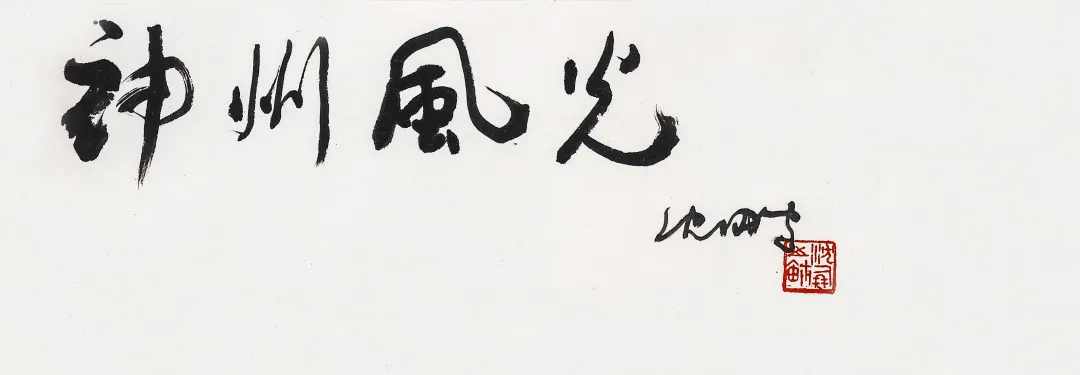 神州風光
沈鹏